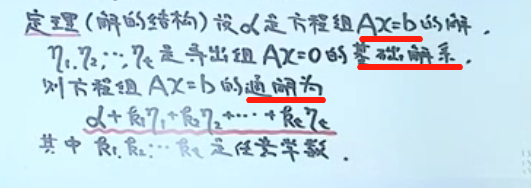 定理(解的结构)设α是方程组AX=b的解,
η₁,η₂,…,ηt是导出组AX=0的基础解系,
则方程组AX=b的通解为
α+k₁η₁+k₂η₂+…+ktηt
其中k₁,k₂…kt是任意常数.